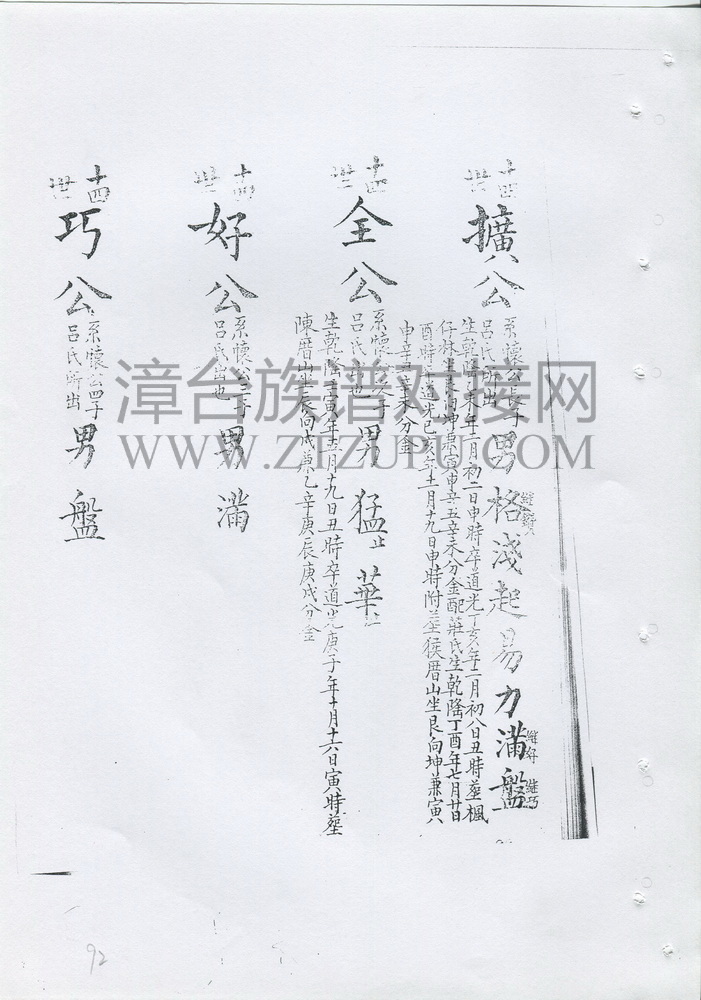 十四世
擴公
系懷公長子
呂氏所出
男格淺起易力滿盤
生乾隆 未年二月初二日申時卒道光丁亥年二月初八日丑時葬楓
仔林坐艮向坤兼寅申辛丑辛未分金配莊氏生乾隆丁酉年七月廿日
酉時 道光己亥年十一月十九日申時附葬猴厝山坐艮向坤兼寅
申辛丑辛未分金
十四世
全公
系懷公 子
呂氏出也
男猛止華
生乾隆壬寅年五月十九日丑時卒道光庚子年十月十六日寅時葬
陳厝山坐辰向戌兼乙辛庚辰庚戌分金
十四世
好公
系懷公三子
呂氏出也
男滿
十四世
巧公
系懷公四子
呂氏所出
男盤
漳台族谱对接网
WWW.ZTZUPU.COM
92